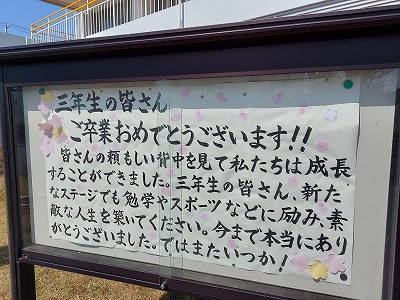 三年生の皆さん
ご卒業おめでとうございます!!
皆さんの頼もしい背中を見て私たちは成長
することができました。三年生の皆さん、新た
なステージでも勉学やスポーツなどに励み、素
敵な人生を築いてください。今まで本当にあり
がとうございました。ではまたいつか!